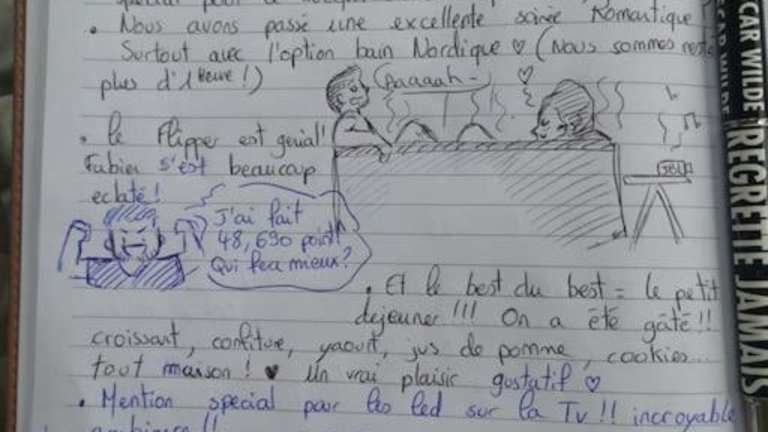 spécial pour
• Nous avons passé une excellente soirée Romantique !
Surtout avec l'option bain Nordique ♡ (Nous sommes resté
plus d'1 Heure !)
Aaaaah ~
• le Flipper est genial!
Fabien s'est beaucoup
eclaté !
JBL
J'ai fait
48,690 point!
Qui fera mieux?
• Et le best du best = le petit
dejeuner !!! On a été gâté !!
croissant, confiture, yaourt, jus de pomme, cookies...
tout maison ! ♥ Un vrai plaisir gustatif ♡
• Mention special pour les led sur la Tv !! incroyable
ambiance !!
OSCAR WILDE
REGRETTE JAMAIS